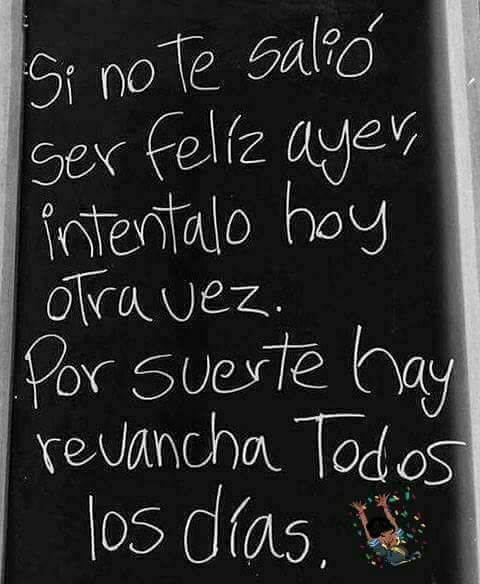 Si no te salió
ser felíz ayer,
intentalo hoy
otra vez.
Por suerte hay
revancha Todos
los días.